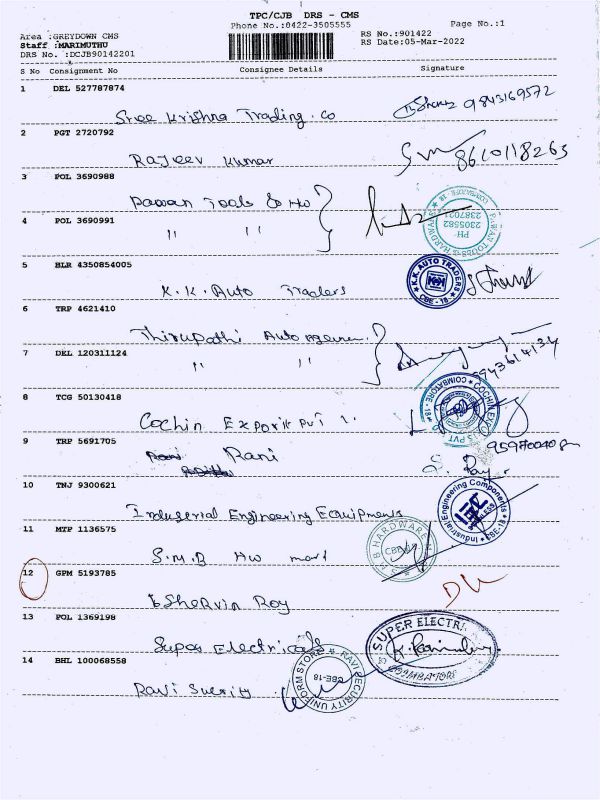 TPC/CJB DRS - CMS
Phone No.:0422-3505555
Page No.:1
Area :GREYDOWN CMS
RS No.:901422
Staff :MARIMUTHU
RS Date:05-Mar-2022
DRS No. :DCJB90142201
S No Consignment No Consignee Details Signature
1 DEL 527787874
Sree Krishna Trading. co 9843169572
2 PGT 2720792
Rajeev Kumar 8610118263
3 POL 3690988
Pawan Tools & Hw
4 POL 3690991
" "
PH-
2305582
2387021
5 BLR 4350854005
K.K. Auto Traders
K.K. AUTO TRADERS
CBE - 18
6 TRP 4621410
Thirupathi Auto
7 DEL 120311124
" "
8 TCG 50130418
Cochin PVT
COIMBATORE - 18
9 TRP 5691705
Rani
10 TNJ 9300621
Industrial Engineering Equipments
Industrial Engineering Components
CBE-18
11 MTP 1136575
S.M.B Hw mart
12 GPM 5193785
Shervin Roy
13 POL 1369198
Super Electricals
SUPER ELECTRI
COIMBATORE
14 BHL 100068558
Ravi
RAVI SECURITY UNIFORM STORE
CBE-18